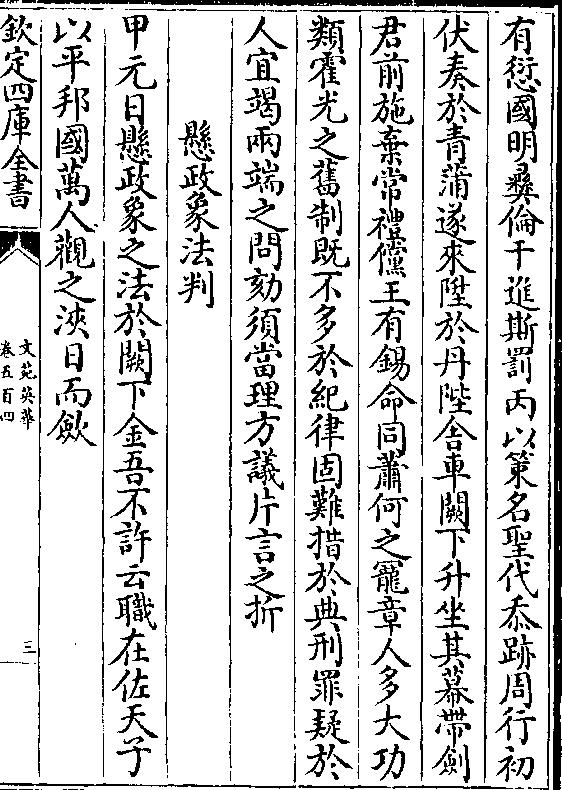 有愆國明彛倫干進斯罰丙以策名聖代忝跡周行初
伏奏於青蒲遂來陞於丹陛舍車闕下升坐其幕帶劍
君前施棄常禮儻王有錫命同蕭何之寵章人多大功
類霍光之舊制既不多於紀律固難措於典刑罪疑於
人宜竭兩端之問劾須當理方議片言之折
懸政象法判
甲元日懸政象之法於闕下金吾不許云職在佐天子
以平邦國萬人觀之浹日而斂
欽定四庫全書
文苑英華
卷五百四
三